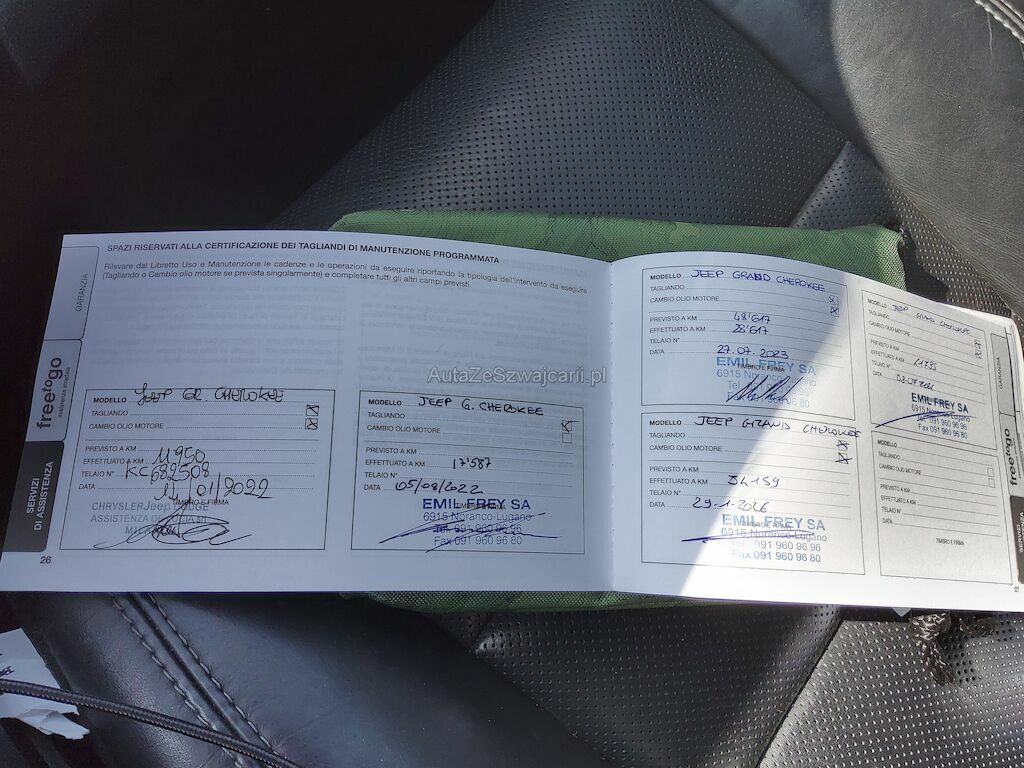 SPAZI RISERVATI ALLA CERTIFICAZIONE DEI TAGLIANDI DI MANUTENZIONE PROGRAMMATA
Rilevare dal Libretto Uso e Manutenzione le cadenze e le operazioni da eseguire riportando la tipologia dell'intervento da eseguire
(Tagliando o Cambio olio motore se prevista singolarmente) e completare tutti gli altri campi previsti.
GARANZIA
freetogo
SERVIZI
DI ASSISTENZA
MODELLO JEEP GR CHEROKEE
TAGLIANDO
CAMBIO OLIO MOTORE
PREVISTO A KM
EFFETTUATO A KM 11950
TELAIO N° KC682508
DATA 14/01/2022
TIMBRO E FIRMA
CHRYSLER Jeep DODGE
ASSISTENZA
MILANO
26
MODELLO JEEP G. CHEROKEE
TAGLIANDO
CAMBIO OLIO MOTORE
PREVISTO A KM
EFFETTUATO A KM 17'587
TELAIO N°
DATA 05/08/2022
EMIL FREY SA
6915 Noranco-Lugano
Tel. 091 960 96 96
Fax 091 960 96 80
MODELLO JEEP GRAND CHEROKEE
TAGLIANDO
CAMBIO OLIO MOTORE
PREVISTO A KM 48'617
EFFETTUATO A KM 28'617
TELAIO N°
DATA 27.07.2023
TIMBRO E FIRMA
EMIL FREY SA
6915 Noranco-Lugano
MODELLO JEEP GRAND CHEROKEE
TAGLIANDO
CAMBIO OLIO MOTORE
PREVISTO A KM
EFFETTUATO A KM
TELAIO N°
DATA
TIMBRO E FIRMA
EMIL FREY SA
6915 Noranco-Lugano
Tel. 091 960 96 96
Fax 091 960 96 80
MODELLO JEEP GRAND CHEROKEE
TAGLIANDO
CAMBIO OLIO MOTORE
PREVISTO A KM
EFFETTUATO A KM
TELAIO N°
DATA
EMIL FREY SA
6915 Noranco-Lugano
Tel. 091 960 96 96
Fax 091 960 96 80
MODELLO
TAGLIANDO
CAMBIO OLIO MOTORE
PREVISTO A KM
EFFETTUATO A KM
TELAIO N°
DATA
TIMBRO E FIRMA
GARANZIA
freetogo
AutaZeSzwajcarii.pl